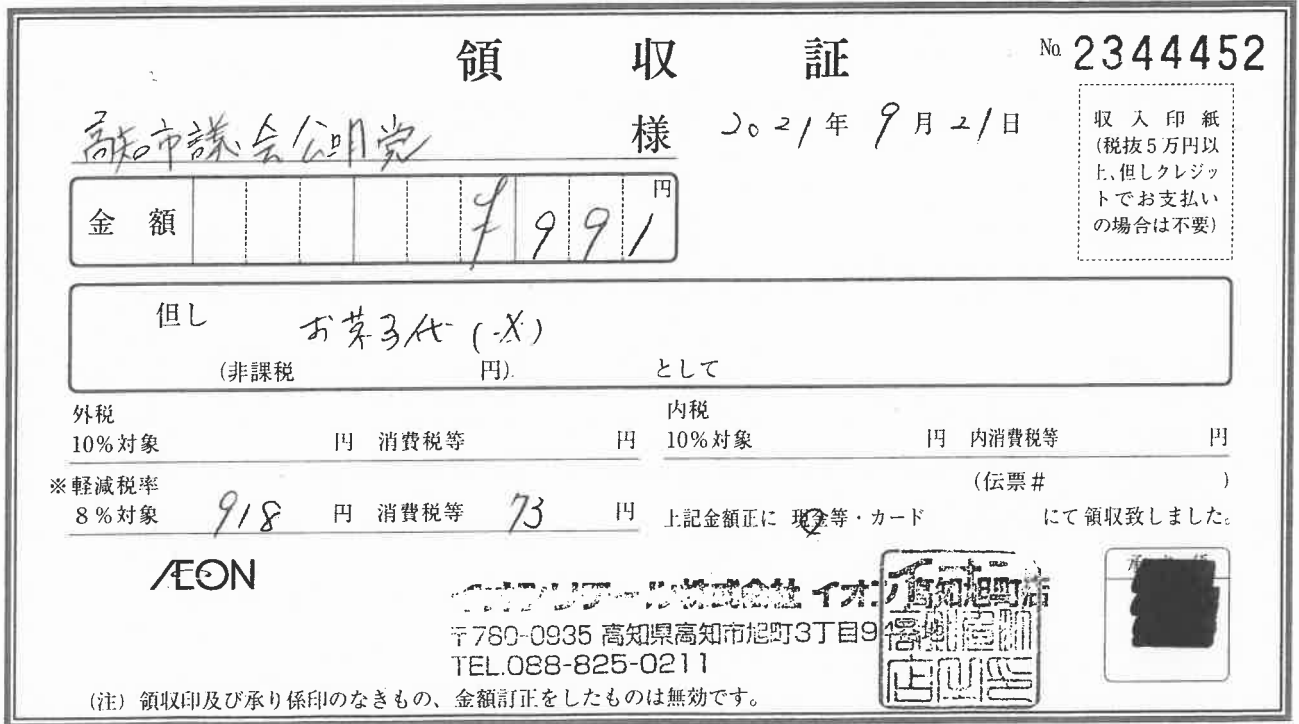 領収証
№ 2344452
高知市議会公明党 様
2021年9月21日
収入印紙
(税抜5万円以
上、但しクレジッ
トでお支払い
の場合は不要)
金額 ¥991円
但し お菓子代(※)
(非課税 円) として
外税
10%対象 円 消費税等 円
内税
10%対象 円 内消費税等 円
※軽減税率
8%対象 918円 消費税等 73円
(伝票# )
上記金額正に 現金等・カード にて領収致しました。
ÆON
イオンリテール株式会社 イオン高知旭町店
〒780-0935 高知県高知市旭町3丁目94番地
TEL.088-825-0211
(注) 領収印及び承り係印のなきもの、金額訂正をしたものは無効です。